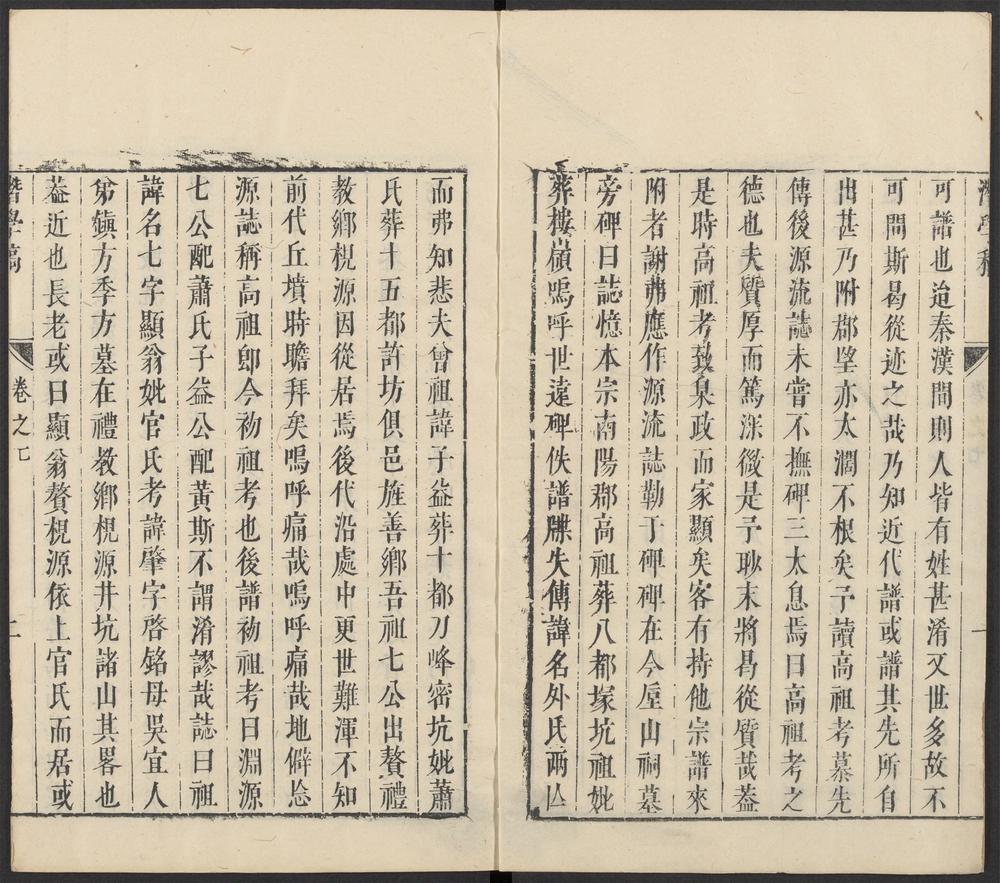 可譜也迨秦漢間則人皆有姓甚淆又世多故不
可問斯曷從迹之哉乃知近代譜或譜其先所自
出甚乃附郡望亦太濶不根矣予讀高祖考慕先
傳後源流誌未甞不撫碑三太息焉曰高祖考之
德也夫質厚而篤深微是予耿末將曷從質哉葢
是時高祖考㩀泉政而家顯矣客有持他宗譜來
附者謝弗應作源流誌勒于碑碑在今屋山祠墓
旁碑曰誌憶本宗南陽郡高祖葬八都塚坑祖妣
葬樓嶺嗚呼世遠碑佚譜牒失傳諱名外氏兩亾
而弗知悲夫曾祖諱子益葬十都刀峰密坑妣蕭
氏葬十五都許坊俱邑旌善鄉吾祖七公出贅禮
教鄉梘源因從居焉後代沿處中更世難渾不知
前代丘墳時瞻拜矣嗚呼痛哉嗚呼痛哉地僻忩
源誌稱高祖卽今初祖考也後譜初祖考曰淵源
七公配蕭氏子益公配黃斯不謂淆謬哉誌曰祖
諱名七字顯翁妣官氏考諱肇字啓銘母吳宜人
弟鎮方季方墓在禮教鄉梘源井坑諸山其畧也
葢近也長老或曰顯翁贅梘源依上官氏而居或
學稿
卷之
二